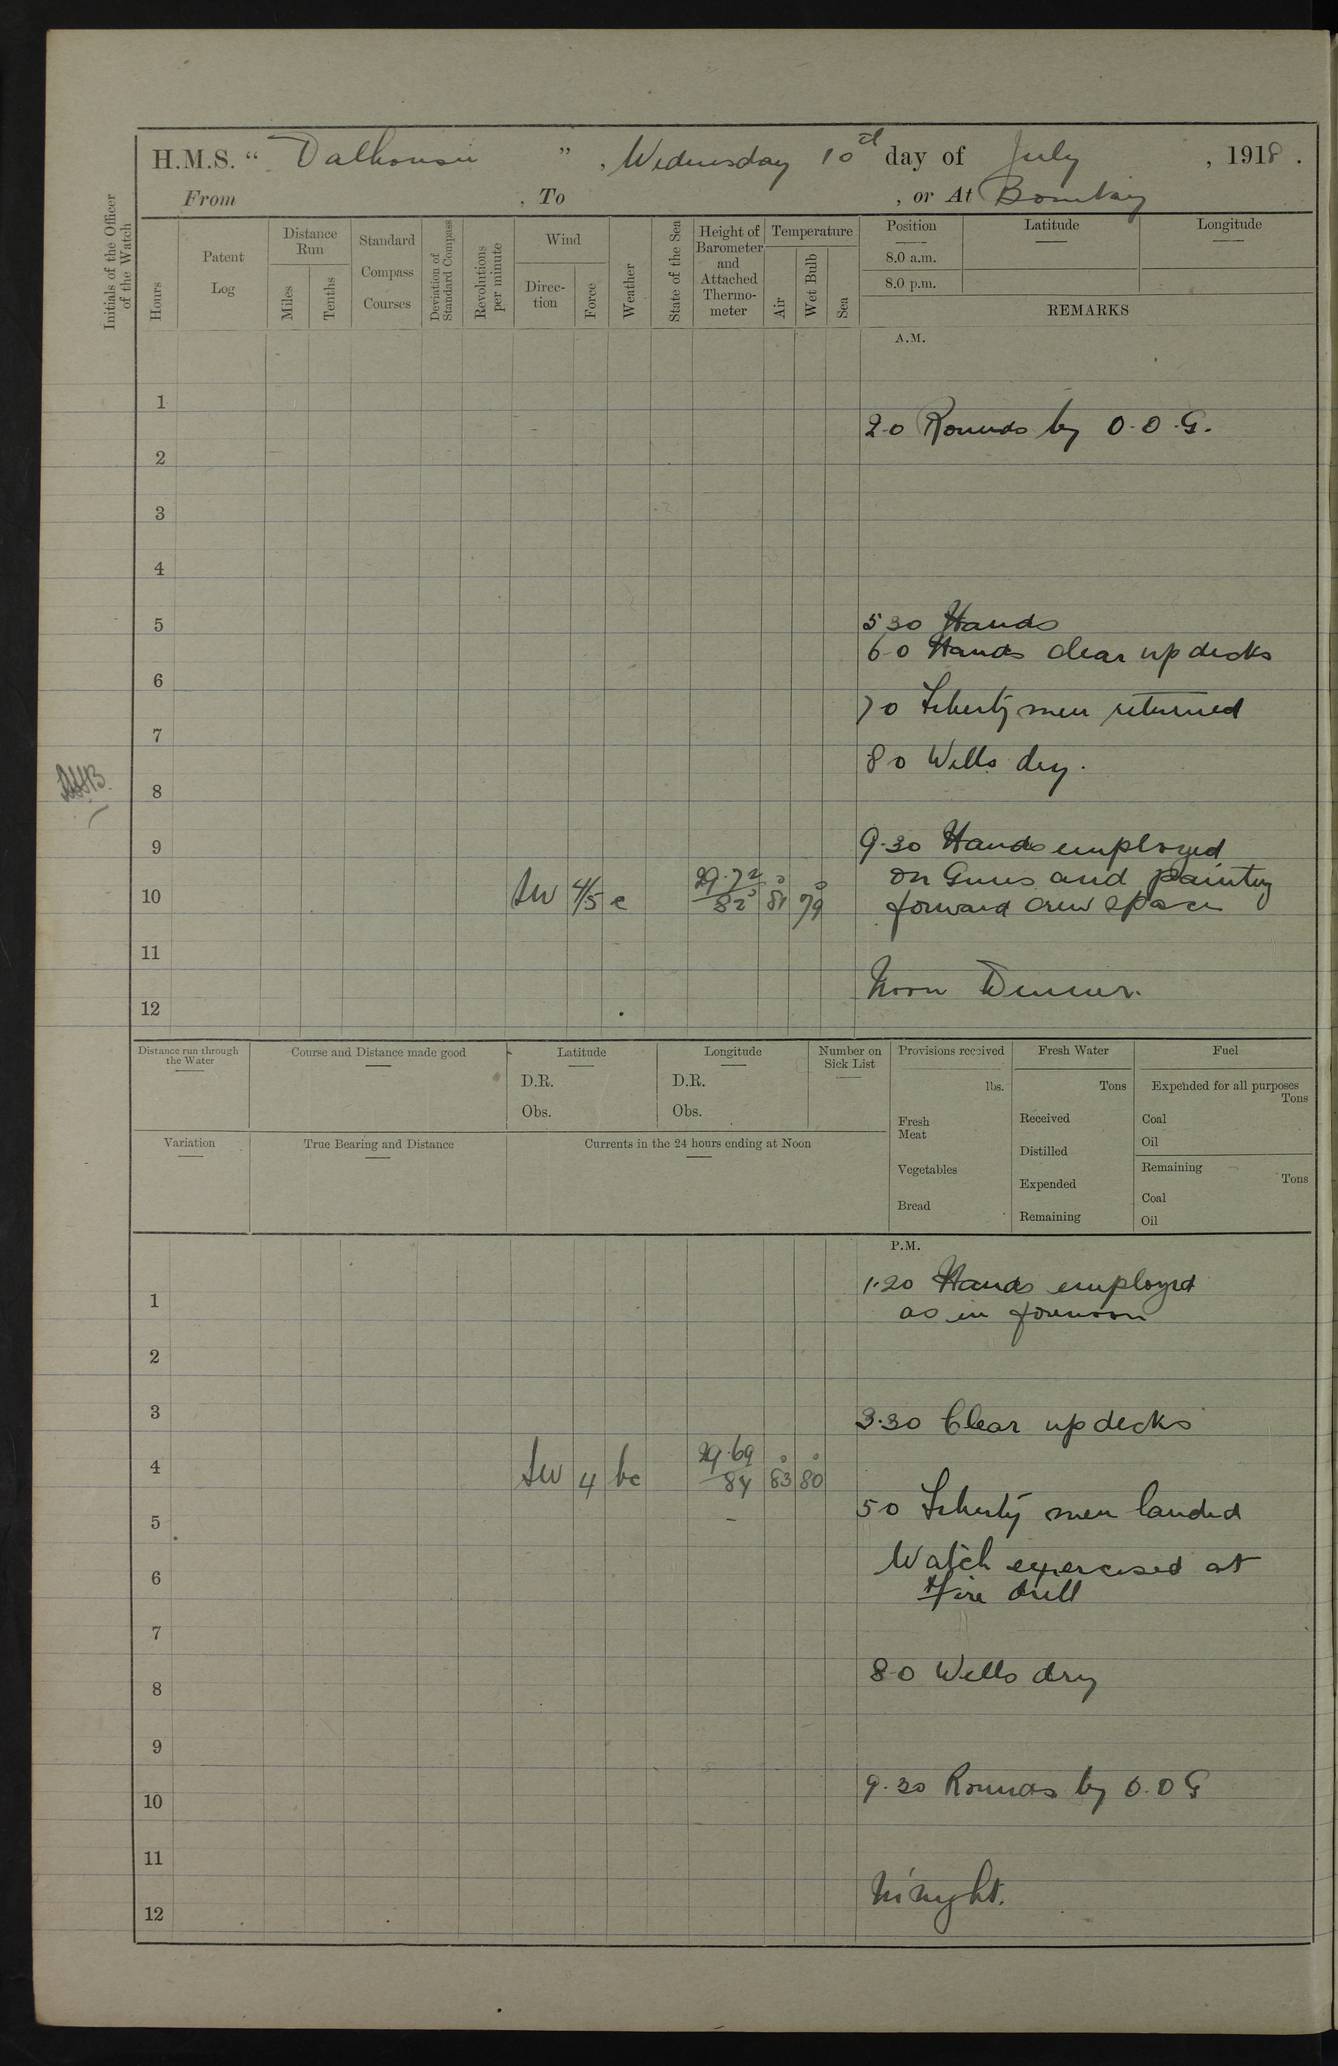 H.M.S. “ Dalhousie ” , Wednesday 10th day of July , 1918 .
From , To , or At Bombay
Initials of the Officer of the Watch
Hours
Patent Log
Distance Run
Miles
Tenths
Standard Compass Courses
Deviation of Standard Compass
Revolutions per minute
Wind
Direction
Force
Weather
State of the Sea
Height of Barometer and Attached Thermometer
Temperature
Air
Wet Bulb
Sea
Position
8.0 a.m.
8.0 p.m.
Latitude
Longitude
REMARKS
A.M.
1
2.0 Rounds by O.O.G.
2
3
4
5
5 30 Hands
6.0 Hands clear up decks
6
7 0 Liberty men returned
7
8 0 Wells dry.
8
9
9.30 Hands employed
on Guns and painting
10 SW 4/5 c 29.72 82° 81° 79° forward crew space
11
Noon Dinner.
12
Distance run through the Water
Course and Distance made good
Latitude
D.R.
Obs.
Longitude
D.R.
Obs.
Number on Sick List
Provisions received
lbs.
Fresh Meat
Vegetables
Bread
Fresh Water
Tons
Received
Distilled
Expended
Remaining
Fuel
Expended for all purposes
Tons
Coal
Oil
Remaining
Tons
Coal
Oil
Variation
True Bearing and Distance
Currents in the 24 hours ending at Noon
P.M.
1.20 Hands employed
1
as in forenoon
2
3
3.30 Clear up decks
4 SW 4 bc 29.69 84 83° 80°
5 0 Liberty men landed
5
Watch exercised at
6
Fire drill
7
8.0 Wells dry
8
9
9.30 Rounds by O.O G
10
11
M'night.
12